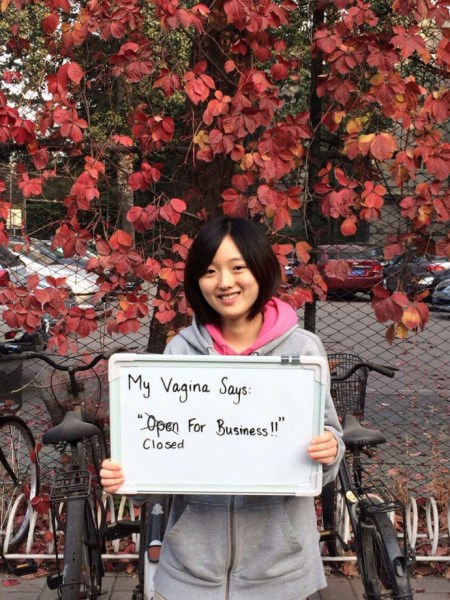 My Vagina Says:
"Open For Business!!"
Closed